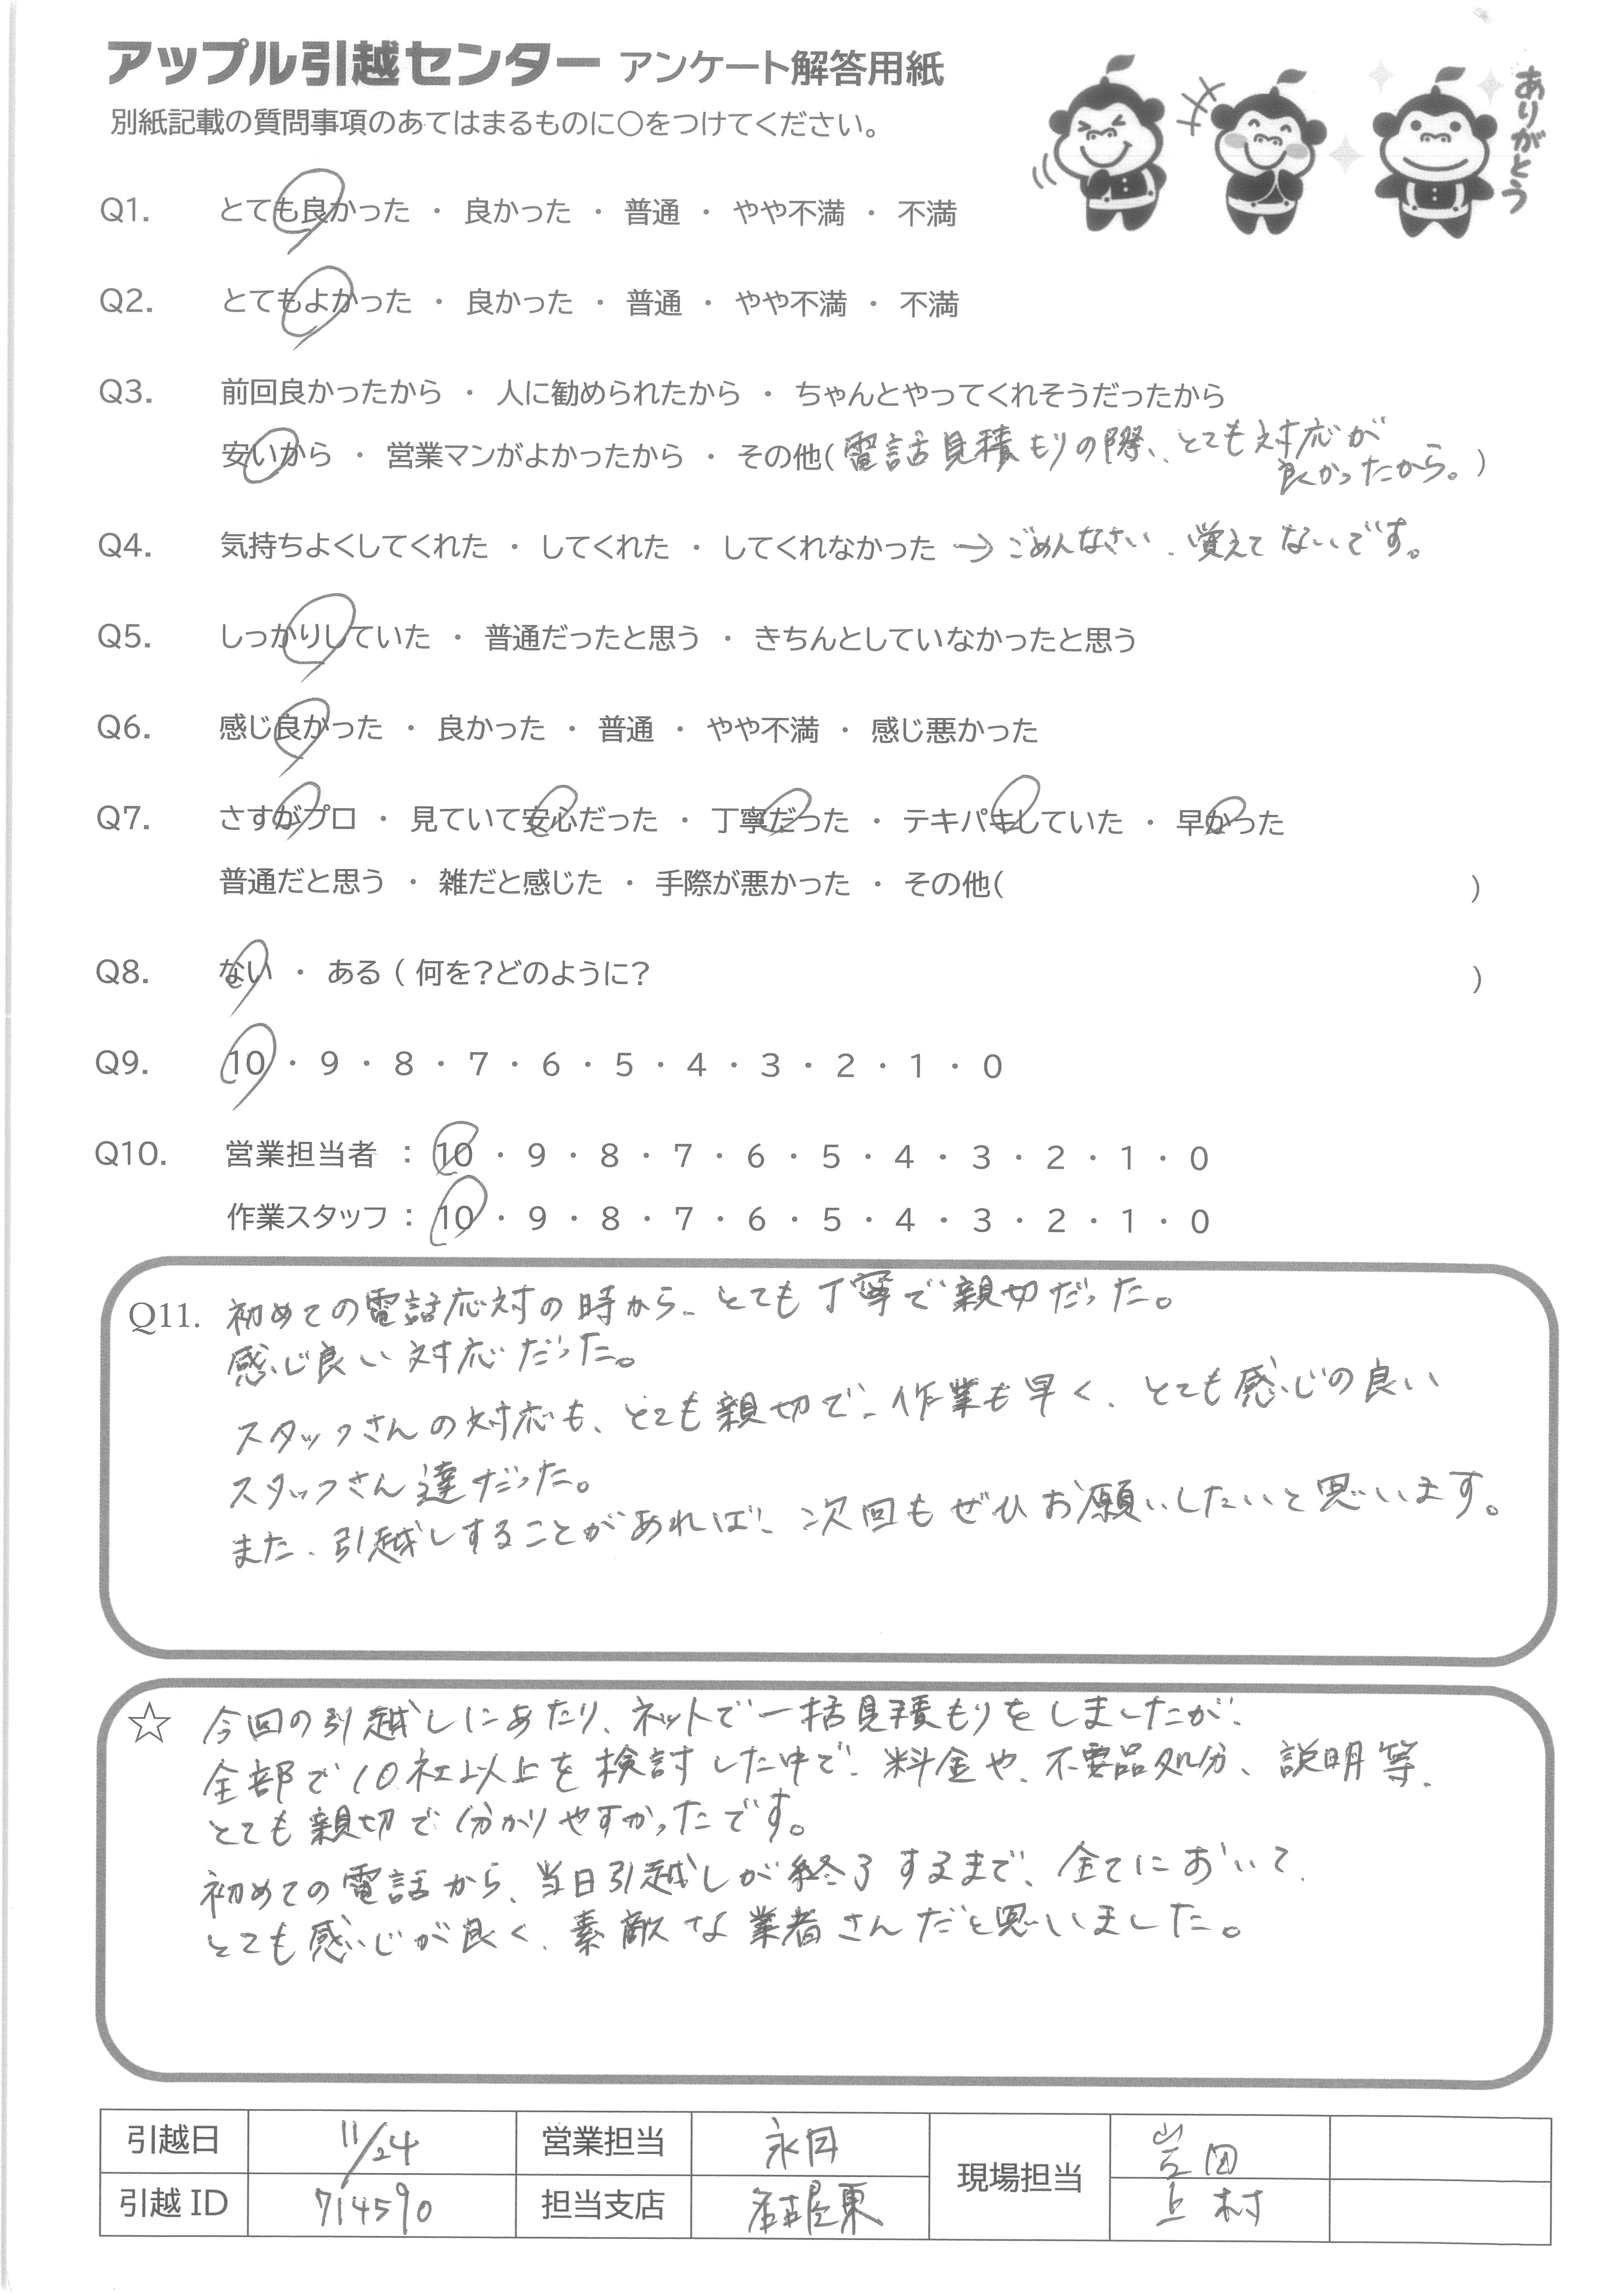 アップル引越センター アンケート解答用紙
別紙記載の質問事項のあてはまるものに〇をつけてください。
ありがとう
Q1. とても良かった ・ 良かった ・ 普通 ・ やや不満 ・ 不満
Q2. とてもよかった ・ 良かった ・ 普通 ・ やや不満 ・ 不満
Q3. 前回良かったから ・ 人に勧められたから ・ ちゃんとやってくれそうだったから
安いから ・ 営業マンがよかったから ・ その他(電話見積もりの際、とても対応が
良かったから。)
Q4. 気持ちよくしてくれた ・ してくれた ・ してくれなかった → ごめんなさい、覚えてないです。
Q5. しっかりしていた ・ 普通だったと思う ・ きちんとしていなかったと思う
Q6. 感じ良かった ・ 良かった ・ 普通 ・ やや不満 ・ 感じ悪かった
Q7. さすがプロ ・ 見ていて安心だった ・ 丁寧だった ・ テキパキしていた ・ 早かった
普通だと思う ・ 雑だと感じた ・ 手際が悪かった ・ その他( )
Q8. ない ・ ある ( 何を?どのように? )
Q9. 10 ・ 9 ・ 8 ・ 7 ・ 6 ・ 5 ・ 4 ・ 3 ・ 2 ・ 1 ・ 0
Q10. 営業担当者 : 10 ・ 9 ・ 8 ・ 7 ・ 6 ・ 5 ・ 4 ・ 3 ・ 2 ・ 1 ・ 0
作業スタッフ : 10 ・ 9 ・ 8 ・ 7 ・ 6 ・ 5 ・ 4 ・ 3 ・ 2 ・ 1 ・ 0
Q11. 初めての電話応対の時から、とても丁寧で親切だった。
感じ良い対応だった。
スタッフさんの対応も、とても親切で、作業も早く、とても感じの良い
スタッフさん達だった。
また、引越しすることがあれば、次回もぜひお願いしたいと思います。
☆ 今回の引越しにあたり、ネットで一括見積もりをしましたが、
全部で10社以上を検討した中で、料金や、不要品処分、説明等、
とても親切で分かりやすかったです。
初めての電話から、当日引越しが終了するまで、全てにおいて、
とても感じが良く、素敵な業者さんだと思いました。
引越日 11/24 営業担当 永田 現場担当 岩田
引越ID 714590 担当支店 名古屋東 上村